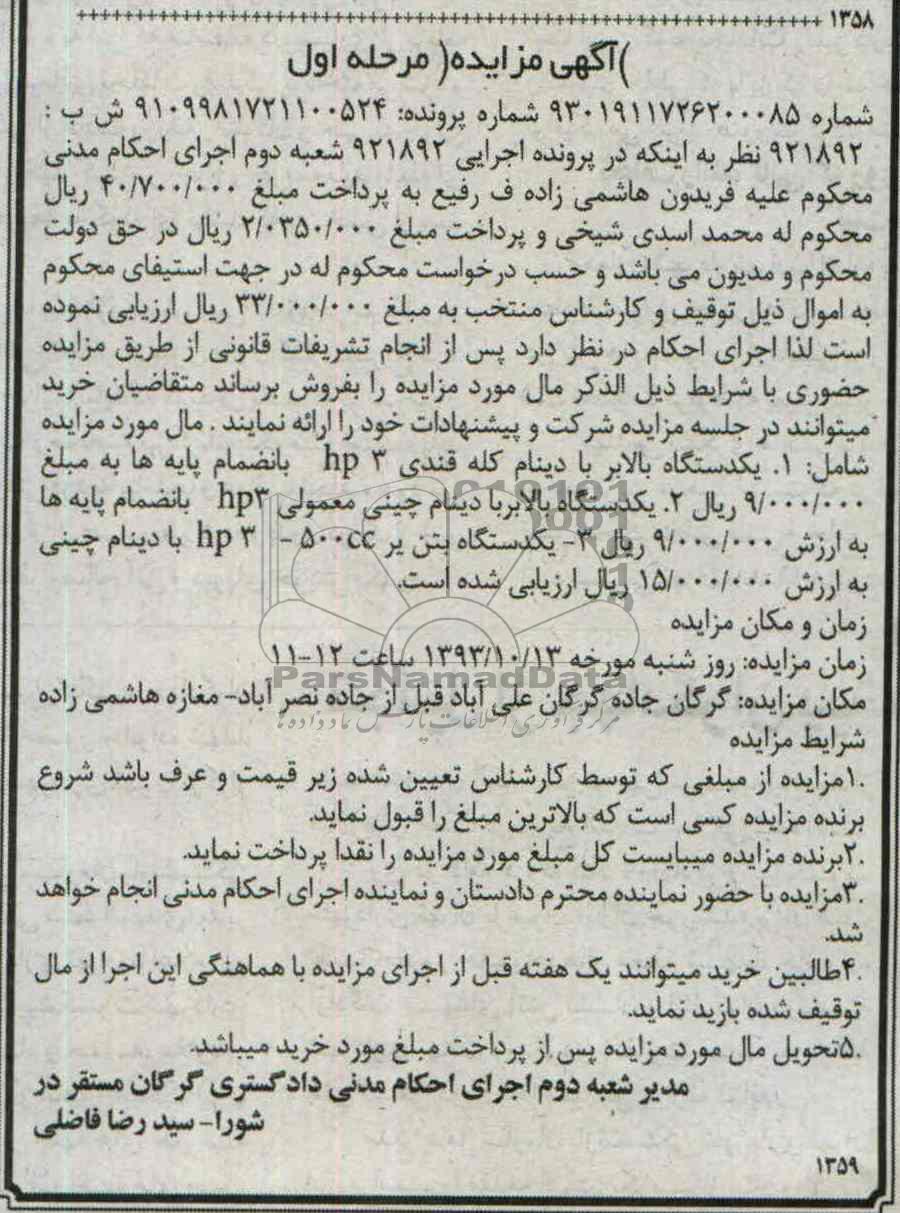 ۱۳۵۸ ++++++++++++++++++++++++++++++++++++++++++++++++++++++++++
)آگهی مزایده( مرحله اول
شماره ۹۳۰۱۹۱۱۷۲۶۲۰۰۰۸۵ شماره پرونده: ۹۱۰۹۹۸۱۷۲۱۱۰۰۵۲۴ ش ب :
۹۲۱۸۹۲ نظر به اینکه در پرونده اجرایی ۹۲۱۸۹۲ شعبه دوم اجرای احکام مدنی
محکوم علیه فریدون هاشمی زاده ف رفیع به پرداخت مبلغ ۴۰/۷۰۰/۰۰۰ ریال
محکوم له محمد اسدی شیخی و پرداخت مبلغ ۲/۰۳۵۰/۰۰۰ ریال در حق دولت
محکوم و مدیون می باشد و حسب درخواست محکوم له در جهت استیفای محکوم
به اموال ذیل توقیف و کارشناس منتخب به مبلغ ۳۳/۰۰۰/۰۰۰ ریال ارزیابی نموده
است لذا اجرای احکام در نظر دارد پس از انجام تشریفات قانونی از طریق مزایده
حضوری با شرایط ذیل الذکر مال مورد مزایده را بفروش برساند متقاضیان خرید
میتوانند در جلسه مزایده شرکت و پیشنهادات خود را ارائه نمایند . مال مورد مزایده
شامل: ۱. یکدستگاه بالابر با دینام کله قندی ۳ hp بانضمام پایه ها به مبلغ
۹/۰۰۰/۰۰۰ ریال ۲. یکدستگاه بالابربا دینام چینی معمولی hp۳ بانضمام پایه ها
به ارزش ۹/۰۰۰/۰۰۰ ریال ۳- یکدستگاه بتن یر ۵۰۰cc - ۳ hp با دینام چینی
به ارزش ۱۵/۰۰۰/۰۰۰ ریال ارزیابی شده است.
زمان و مکان مزایده
زمان مزایده: روز شنبه مورخه ۱۳۹۳/۱۰/۱۳ ساعت ۱۲-۱۱
ParsNamadData
مکان مزایده: گرگان جاده گرگان علی آباد قبل از جاده نصر آباد- مغازه هاشمی زاده
مرکز فرآوری اطلاعات پارس نماد داده ها
شرایط مزایده
.۱مزایده از مبلغی که توسط کارشناس تعیین شده زیر قیمت و عرف باشد شروع
برنده مزایده کسی است که بالاترین مبلغ را قبول نماید.
.۲برنده مزایده میبایست کل مبلغ مورد مزایده را نقدا پرداخت نماید.
.۳مزایده با حضور نماینده محترم دادستان و نماینده اجرای احکام مدنی انجام خواهد
شد.
.۴طالبین خرید میتوانند یک هفته قبل از اجرای مزایده با هماهنگی این اجرا از مال
توقیف شده بازید نماید.
.۵تحویل مال مورد مزایده پس از پرداخت مبلغ مورد خرید میباشد.
مدیر شعبه دوم اجرای احکام مدنی دادگستری گرگان مستقر در
شورا- سید رضا فاضلی
۱۳۵۹